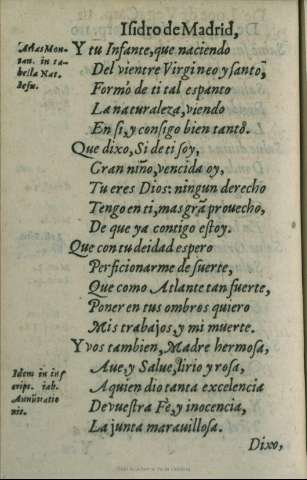 Isidro de Madrid,
Arias Mon-
tan. in ta-
bella Nat.
Iesu.
Y tu Infante, que naciendo
Del vientre Virgineo y santo,
Formò de ti tal espanto
La naturaleza, viendo
En si, y consigo bien tantõ.
Que dixo, Si de ti soy,
Gran niño, vencida oy,
Tu eres Dios: ningun derecho
Tengo en ti, mas grã prouecho,
De que ya contigo estoy.
Que con tu deidad espero
Perficionarme de suerte,
Que como Atlante tan fuerte,
Poner en tus ombros quiero
Mis trabajos, y mi muerte.
Y vos tambien, Madre hermosa,
Aue, y Salue, lirio y rosa,
Idem in inscript. tab.
Annũtiatio
nis.
A quien dio tanta excelencia
De vuestra Fè, y inocencia,
La junta marauillosa.
Dixo,